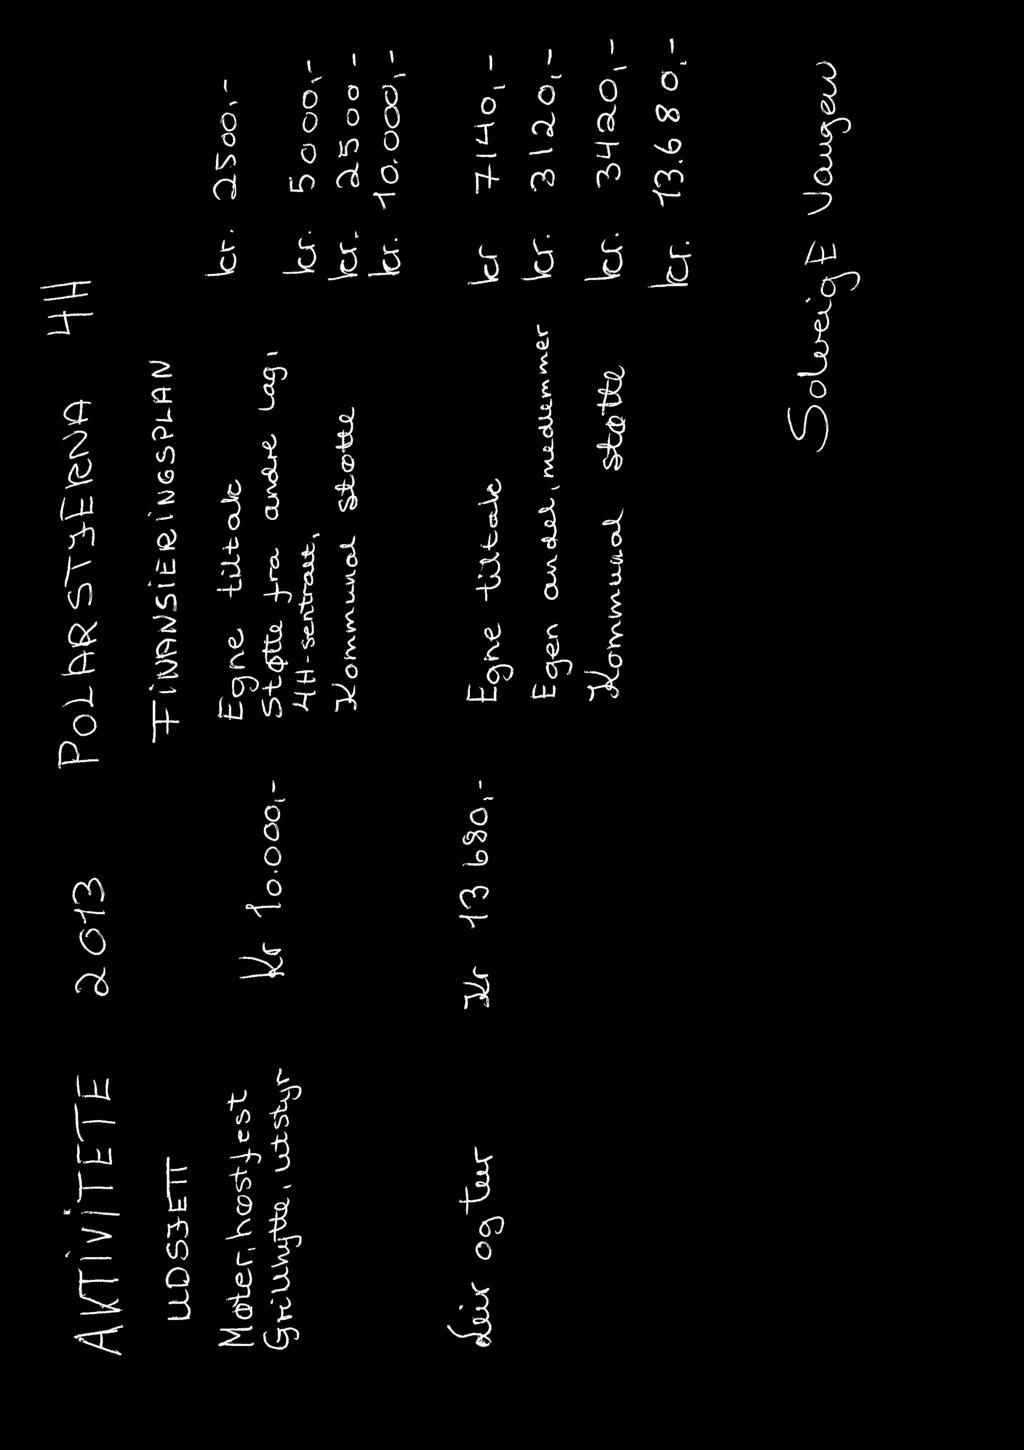 AKTIVITETE 2013 POLARSTJERNA 4H
UDSJETT FINANSIERINGSPLAN
Møter, høstfest Egne tiltak kr. 2500,-
Grillhytte, utstyr Kr 10.000,- Støtte fra andre lag,
4H-sentralt, kr. 5000,-
Kommunal støtte kr. 2500 -
kr. 10.000,-
Leir og tur Kr 13 680,- Egne tiltak kr 7140,-
Egen andel, medlemmer kr. 3120,-
Kommunal støtte kr. 3420,-
kr. 13.680,-
Solveig E Vangen